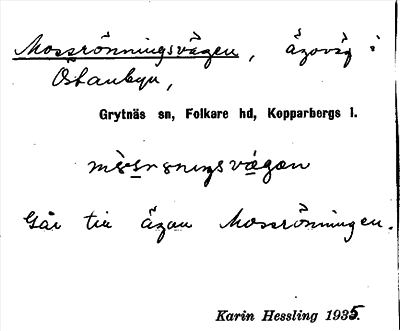 Mossrönningsvägen, ägoväg i
Östanbyn,
Grytnäs sn, Folkare hd, Kopparbergs l.
Går till ägan Mossrönningen.
Karin Hessling 1935.